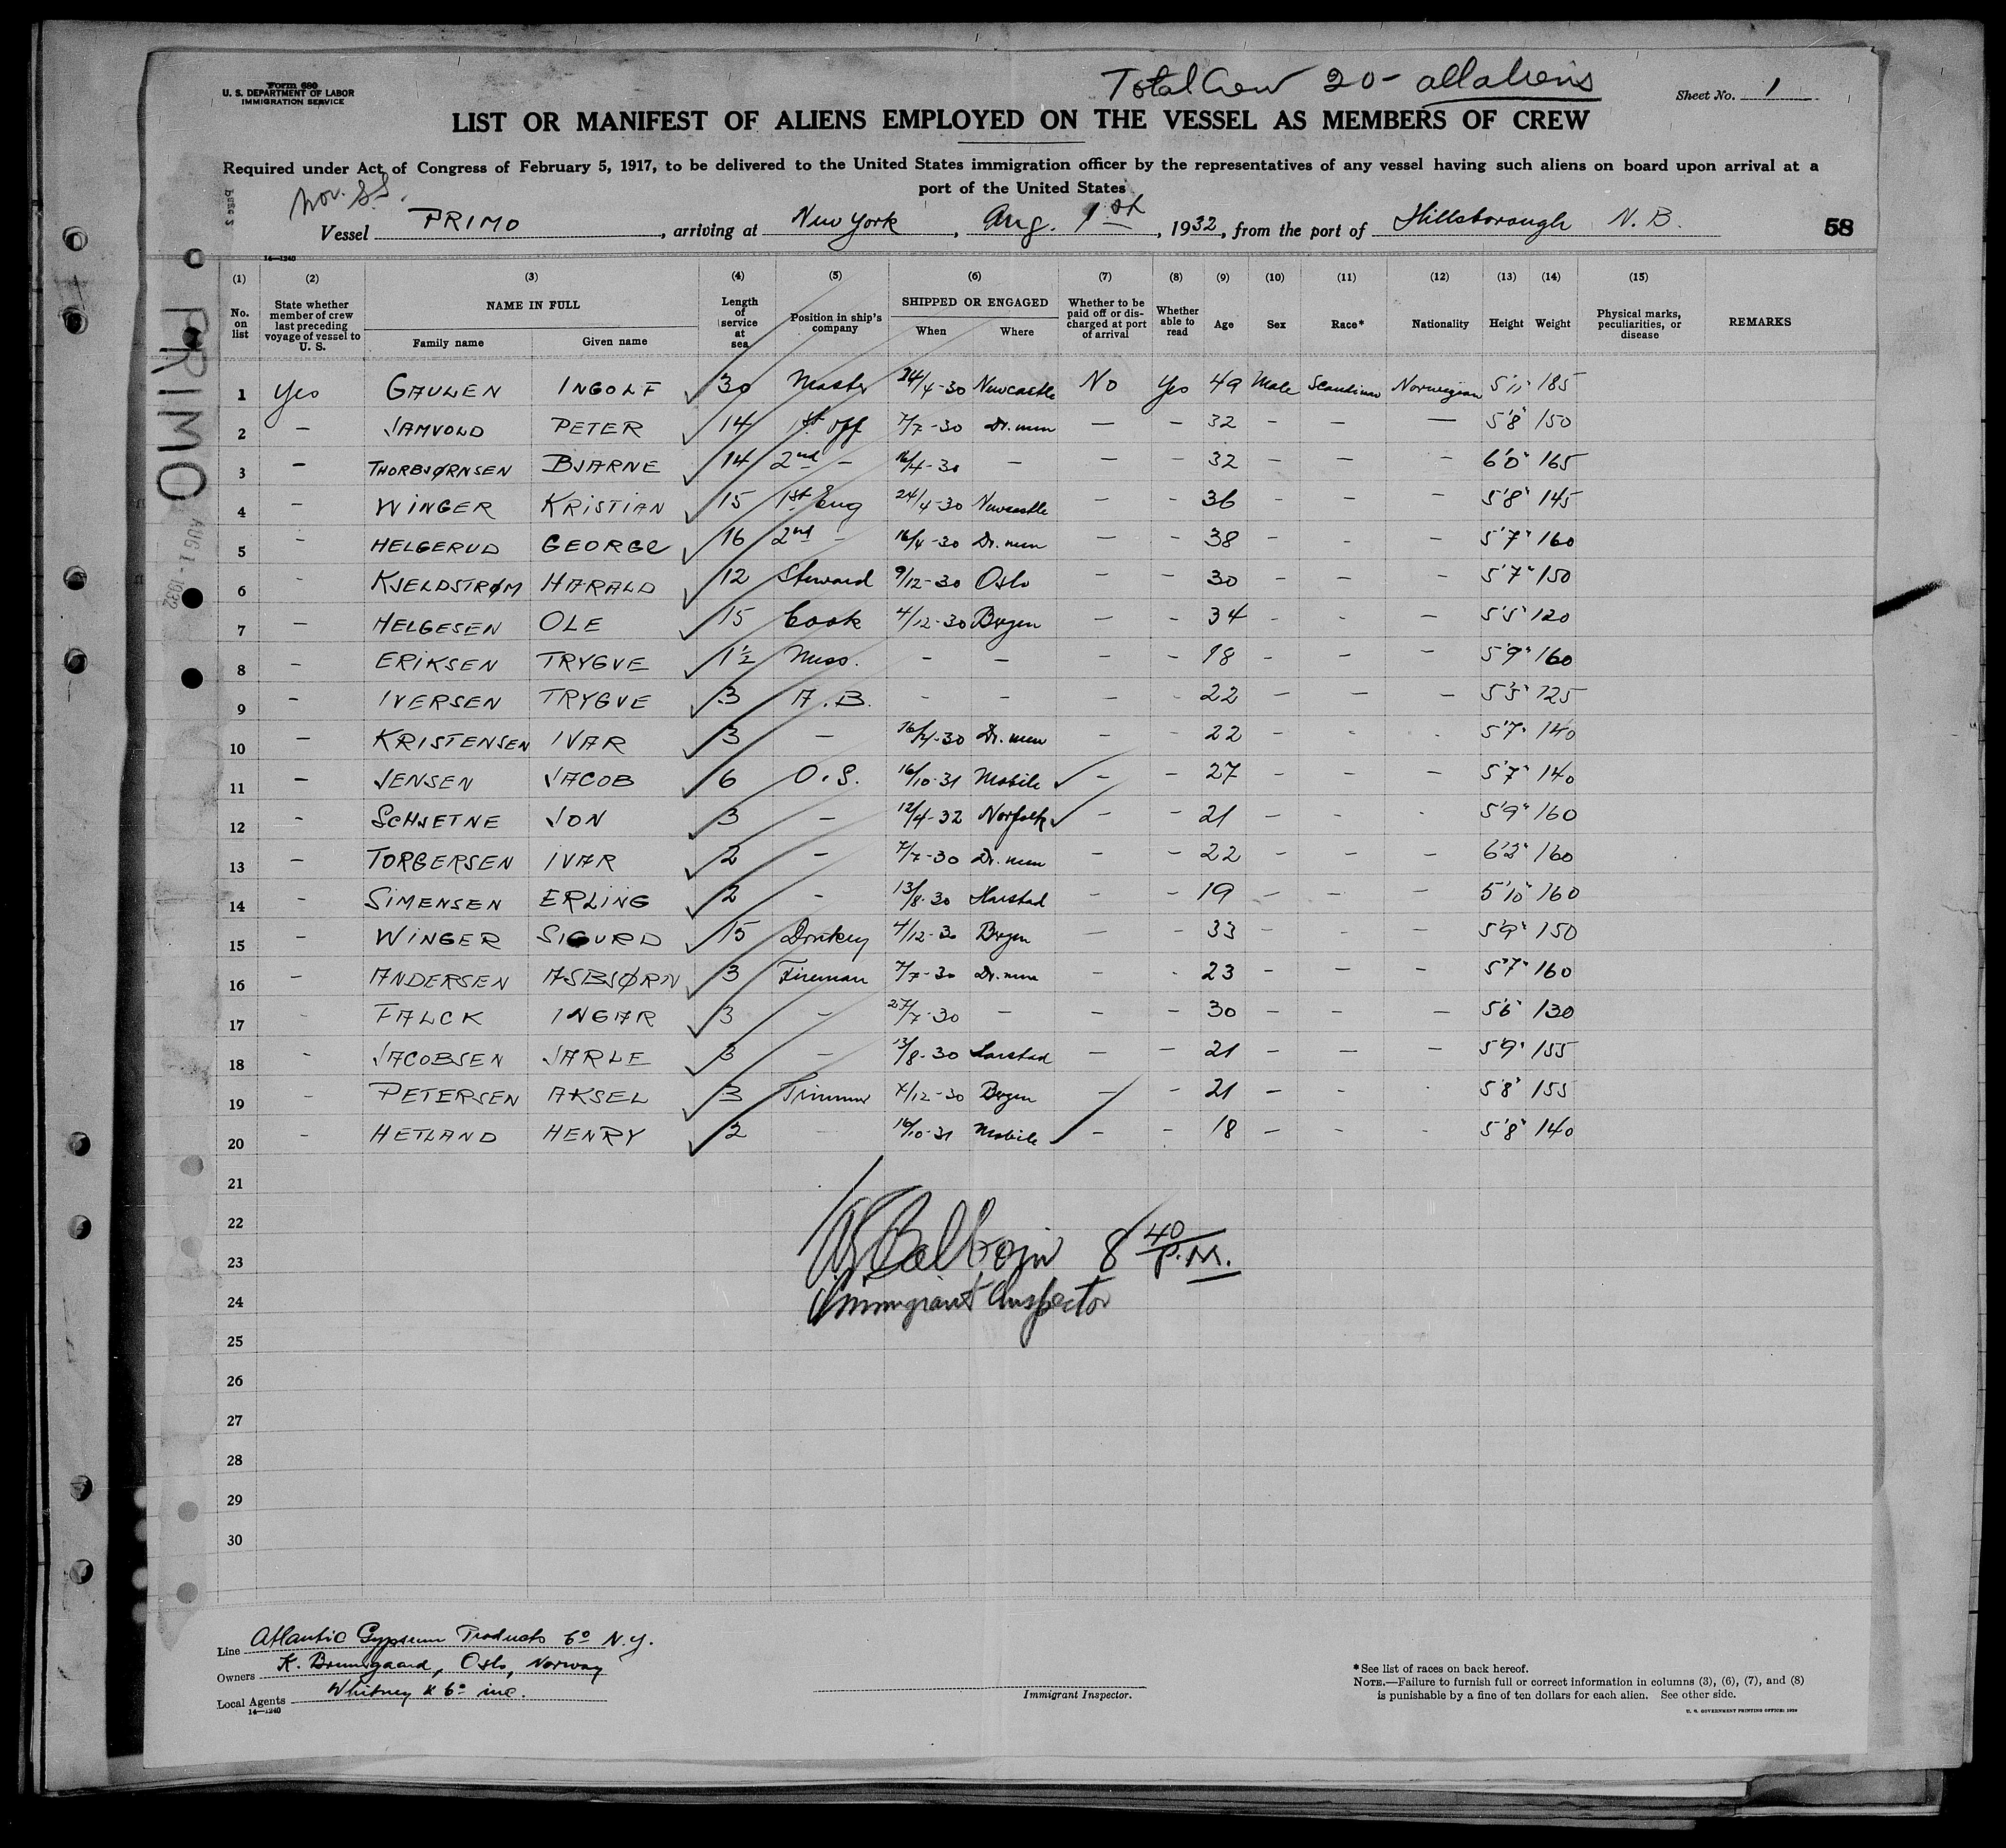 Form 680
U. S. DEPARTMENT OF LABOR
IMMIGRATION SERVICE
Total Crew 20 - all aliens
Sheet No. 1
LIST OR MANIFEST OF ALIENS EMPLOYED ON THE VESSEL AS MEMBERS OF CREW
Required under Act of Congress of February 5, 1917, to be delivered to the United States immigration officer by the representatives of any vessel having such aliens on board upon arrival at a
port of the United States
Nor. S.S.
Vessel PRIMO, arriving at New York, Aug. 1st, 1932, from the port of Hillsborough N. B.
58
PRIMO
AUG 1 - 1932
14—1240
(1) (2) (3) (4) (5) (6) (7) (8) (9) (10) (11) (12) (13) (14) (15)
No. on list
State whether member of crew last preceding voyage of vessel to U. S.
NAME IN FULL
Family name
Given name
Length of service at sea
Position in ship's company
SHIPPED OR ENGAGED
When
Where
Whether to be paid off or discharged at port of arrival
Whether able to read
Age
Sex
Race*
Nationality
Height
Weight
Physical marks, peculiarities, or disease
REMARKS
1 Yes GAULEN INGOLF 30 Master 24/4-30 Newcastle No Yes 49 Male Scandinav Norwegian 5'11" 185
2 — JAMVOLD PETER 14 1st off 7/7-30 Dr.men — — 32 — — — 5'8" 150
3 — THORBJØRNSEN BJARNE 14 2nd — 16/4-30 — — — 32 — — — 6'0" 165
4 — WINGER KRISTIAN 15 1st Eng 24/4-30 Newcastle — — 36 — — — 5'8" 145
5 — HELGERUD GEORGE 16 2nd — 16/4-30 Dr.men — — 38 — — — 5'7" 160
6 — KJELDSTRØM HARALD 12 Steward 9/12-30 Oslo — — 30 — — — 5'7" 150
7 — HELGESEN OLE 15 Cook 4/12-30 Bergen — — 34 — — — 5'5" 120
8 — ERIKSEN TRYGVE 1½ Mess. — — — — 18 — — — 5'9" 160
9 — IVERSEN TRYGVE 3 A.B. — — — — 22 — — — 5'5" 125
10 — KRISTENSEN IVAR 3 — 16/4-30 Dr.men — — 22 — — — 5'7" 140
11 — JENSEN JACOB 6 O.S. 16/10-31 Mobile — — 27 — — — 5'7" 140
12 — SCHJETNE JON 3 — 12/4-32 Norfolk — — 21 — — — 5'9" 160
13 — TORGERSEN IVAR 2 — 7/7-30 Dr.men — — 22 — — — 6'2" 160
14 — SIMENSEN ERLING 2 — 13/8-30 Harstad — — 19 — — — 5'10" 160
15 — WINGER SIGURD 15 Donkey 4/12-30 Bergen — — 33 — — — 5'9" 150
16 — ANDERSEN ASBJØRN 3 Fireman 7/7-30 Dr.men — — 23 — — — 5'7" 160
17 — FALCK INGAR 3 — 27/7-30 — — — 30 — — — 5'6" 130
18 — JACOBSEN JARLE 3 — 13/8-30 Harstad — — 21 — — — 5'9" 155
19 — PETERSEN AKSEL 3 Trimmer 4/12-30 Bergen — — 21 — — — 5'8" 155
20 — HETLAND HENRY 2 — 16/10-31 Mobile — — 18 — — — 5'8" 140
21
22
23
8 40 P.M.
24
Immigrant Inspector
25
26
27
28
29
30
Line Atlantic Gypsum Products Co N.Y.
Owners K. Bruusgaard, Oslo, Norway
Local Agents Whitney & Co inc.
14—1240
Immigrant Inspector.
*See list of races on back hereof.
NOTE.—Failure to furnish full or correct information in columns (3), (6), (7), and (8)
is punishable by a fine of ten dollars for each alien. See other side.